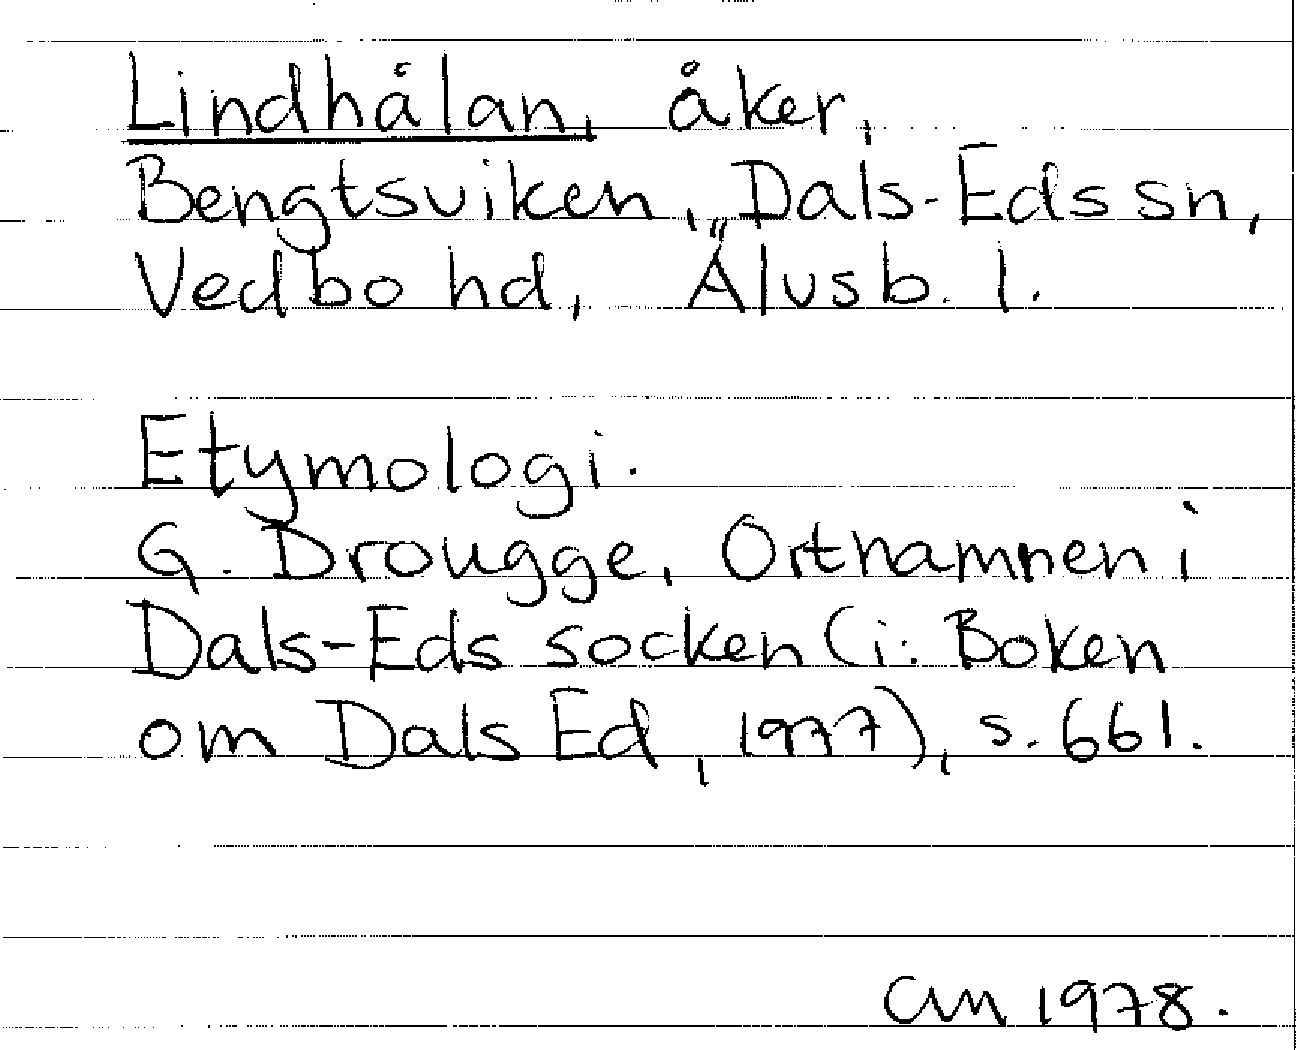 Lindhålan, åker,
Bengtsviken, Dals-Eds sn,
Vedbo hd, Älvsb. l.
Etymologi.
G. Drougge, Ortnamnen i
Dals-Eds socken (i: Boken
om Dals Ed, 1977), s. 661.
CM 1978.